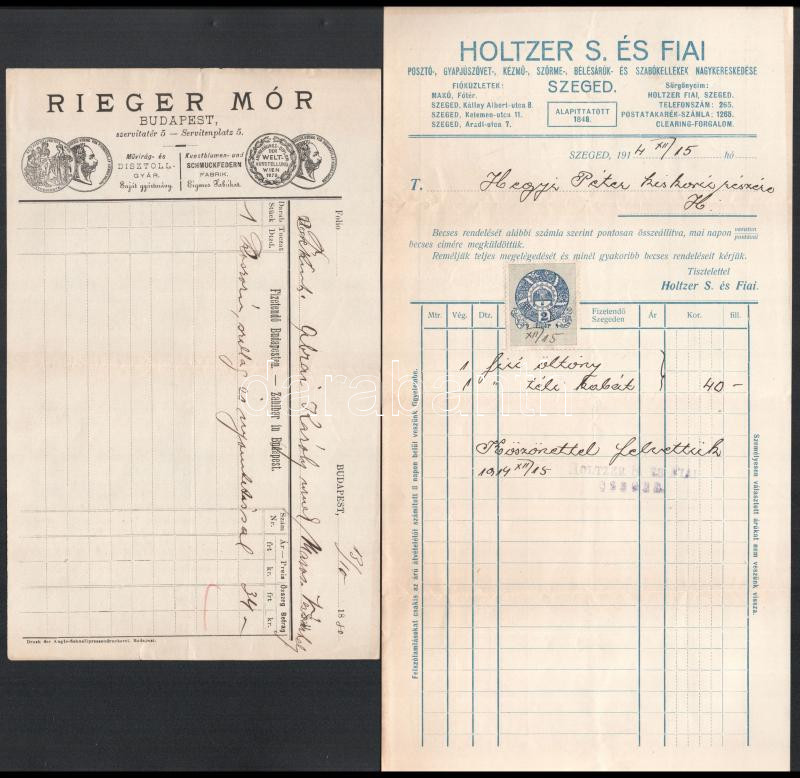 RIEGER MÓR
BUDAPEST,
szervitatér 5 — Servitenplatz 5.
Művirág- és
DISZTOLL-
GYÁR.
Saját gyártmány.
Kunstblumen- und
SCHMUCKFEDERN
FABRIK.
Eigenes Fabrikat.
WELT-
AUSSTELLUNG
WIEN
1873
Folio
BUDAPEST, 13/10 1880
Károly
Maros
Darab Tuczat
Stück Dtzd.
Fizetendő Budapesten. — Zahlbar in Budapest.
Szám
Nr.
Ár — Preis
frt kr.
Összeg Betrag
frt kr.
1
34 —
Druck der Anglo-Schnellpressendruckerei, Budapest.
HOLTZER S. ÉS FIAI
POSZTÓ-, GYAPJÚSZÖVET-, KÉZMŰ-, SZŐRME-, BÉLÉSÁRÚK- ÉS SZABÓKELLÉKEK NAGYKERESKEDÉSE
SZEGED.
FIÓKÜZLETEK:
MAKÓ, Főtér.
SZEGED, Kállay Albert-utca 8.
SZEGED, Kelemen-utca 11.
SZEGED, Arzdi-utca 7.
ALAPITTATOTT
1848.
Sürgönycim:
HOLTZER FIAI, SZEGED.
TELEFONSZÁM: 265.
POSTATAKARÉK-SZÁMLA: 1265.
CLEARING-FORGALOM.
SZEGED, 1914 XII/15 hó
T. Hegyi Péter kiskorú részére
H.
Becses rendelését alábbi számla szerint pontosan összeállitva, mai napon vasuton postával
becses cimére megküldöttük.
Reméljük teljes megelégedését és minél gyakoribb becses rendeléseit kérjük.
Tisztelettel
Holtzer S. és Fiai.
Mtr. Vég. Dtz. Fizetendő Szegeden Ár Kor. fill.
2
XII/15
1 fiú öltöny
1 " téli kabát 40 —
Köszönettel felvettük
1914 XII/15
HOLTZER S. ÉS FIAI
SZEGED
Felszólamlásokat csakis az árú átvételétől számitott 8 napon belül veszünk figyelembe.
Személyesen választott árúkat nem veszünk vissza.
darabanth